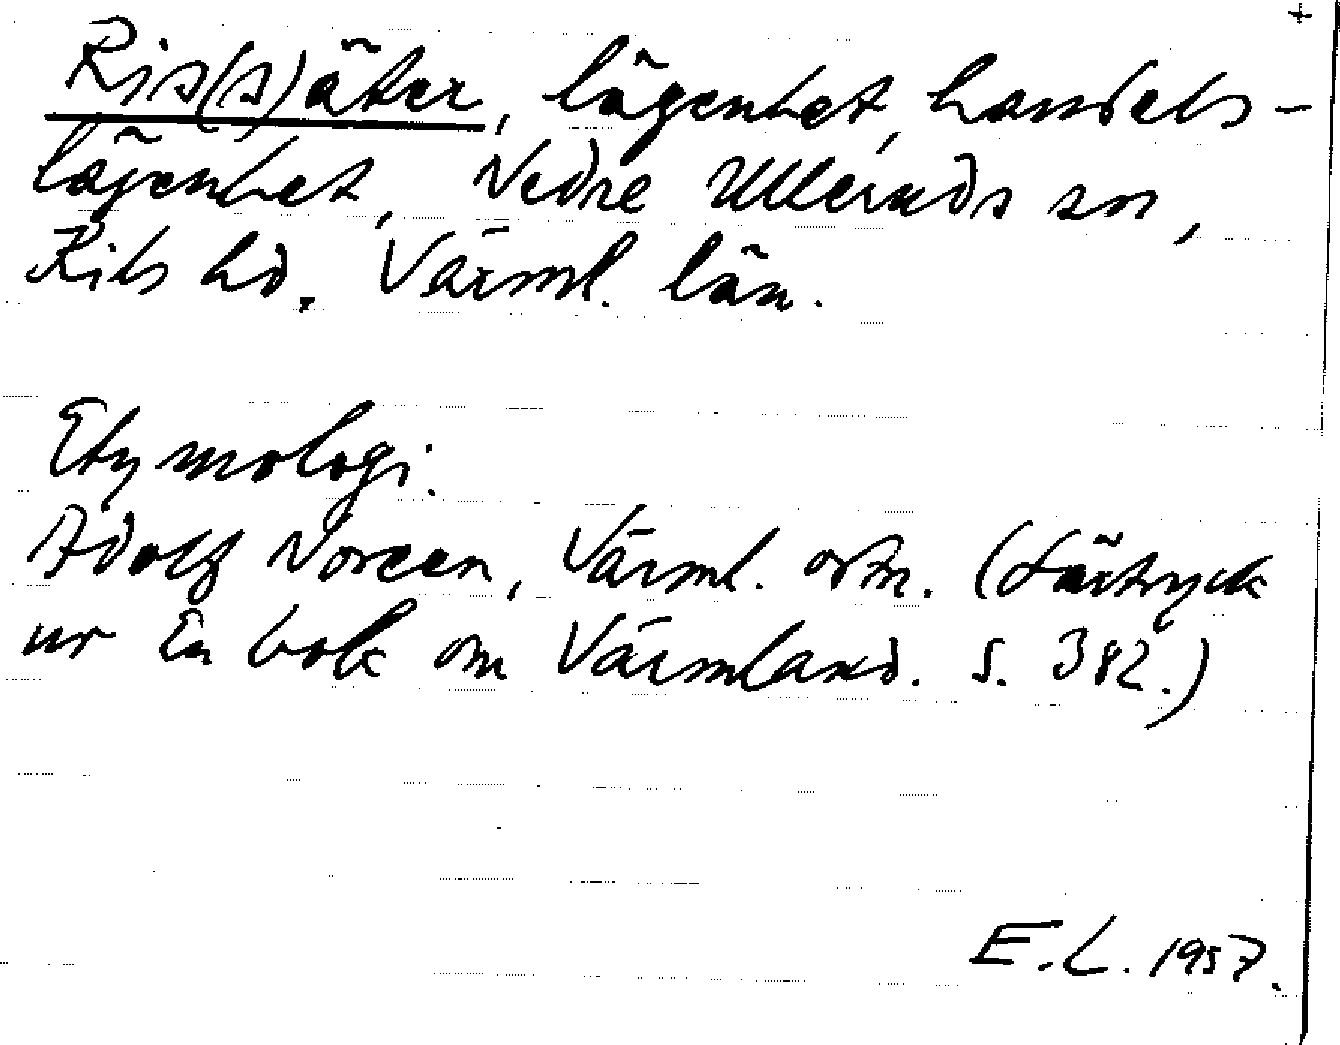 +
Ris(s)äter, lägenhet, handels-
lägenhet, Nedre Ulleruds sn,
Kils hd. Värml. län.
Etymologi.
Adolf Noreen, Värml. ortn. (Särtryck
ur En bok om Värmland. S. 382.)
E.L. 1957.